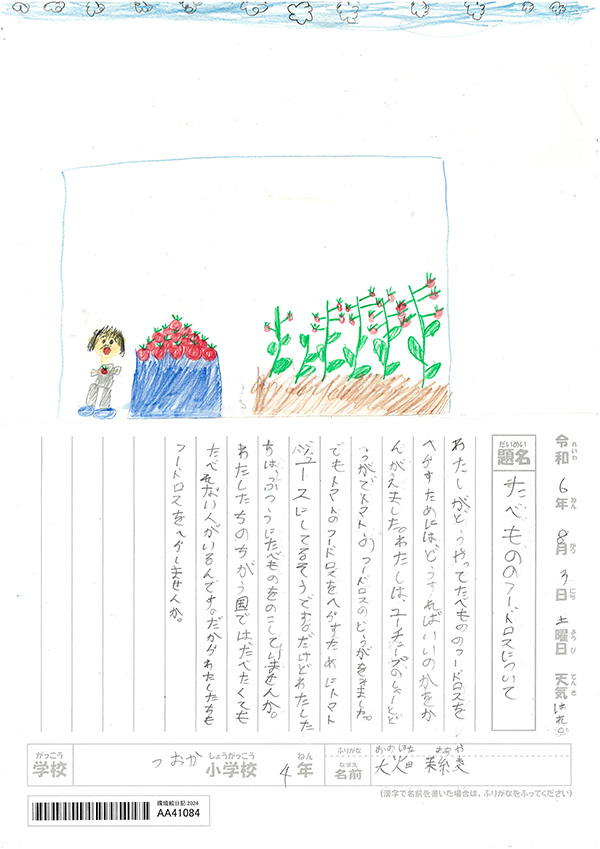 令和6年8月3日土曜日 天気はれ
れいわ ねん がつ にち ようび てんき
だいめい
題名 たべもののフードロスについて
わたしがどうやってたべもののフードロスを
へらすためには、どうすればいいのかをか
んがえました。わたしは、ユーチューブのショートど
うがでトマトのフードロスのどうがをみました。
でもトマトのフードロスをへらすためにトマト
ジュースにしてるそうです。だけどわたした
ちは、ふつうにたべものをのこしていませんか。
わたしたちのちがう国ではたべたくても
たべれない人がいるんです。だからわたしたちも
フードロスをへらしませんか。
がっこう しょうがっこう ねん
学校 つおか 小学校 4年
ふりがな
なまえ
名前
(漢字で名前を書いた場合は、ふりがなをふってください)
環境絵日記2024
AA41084